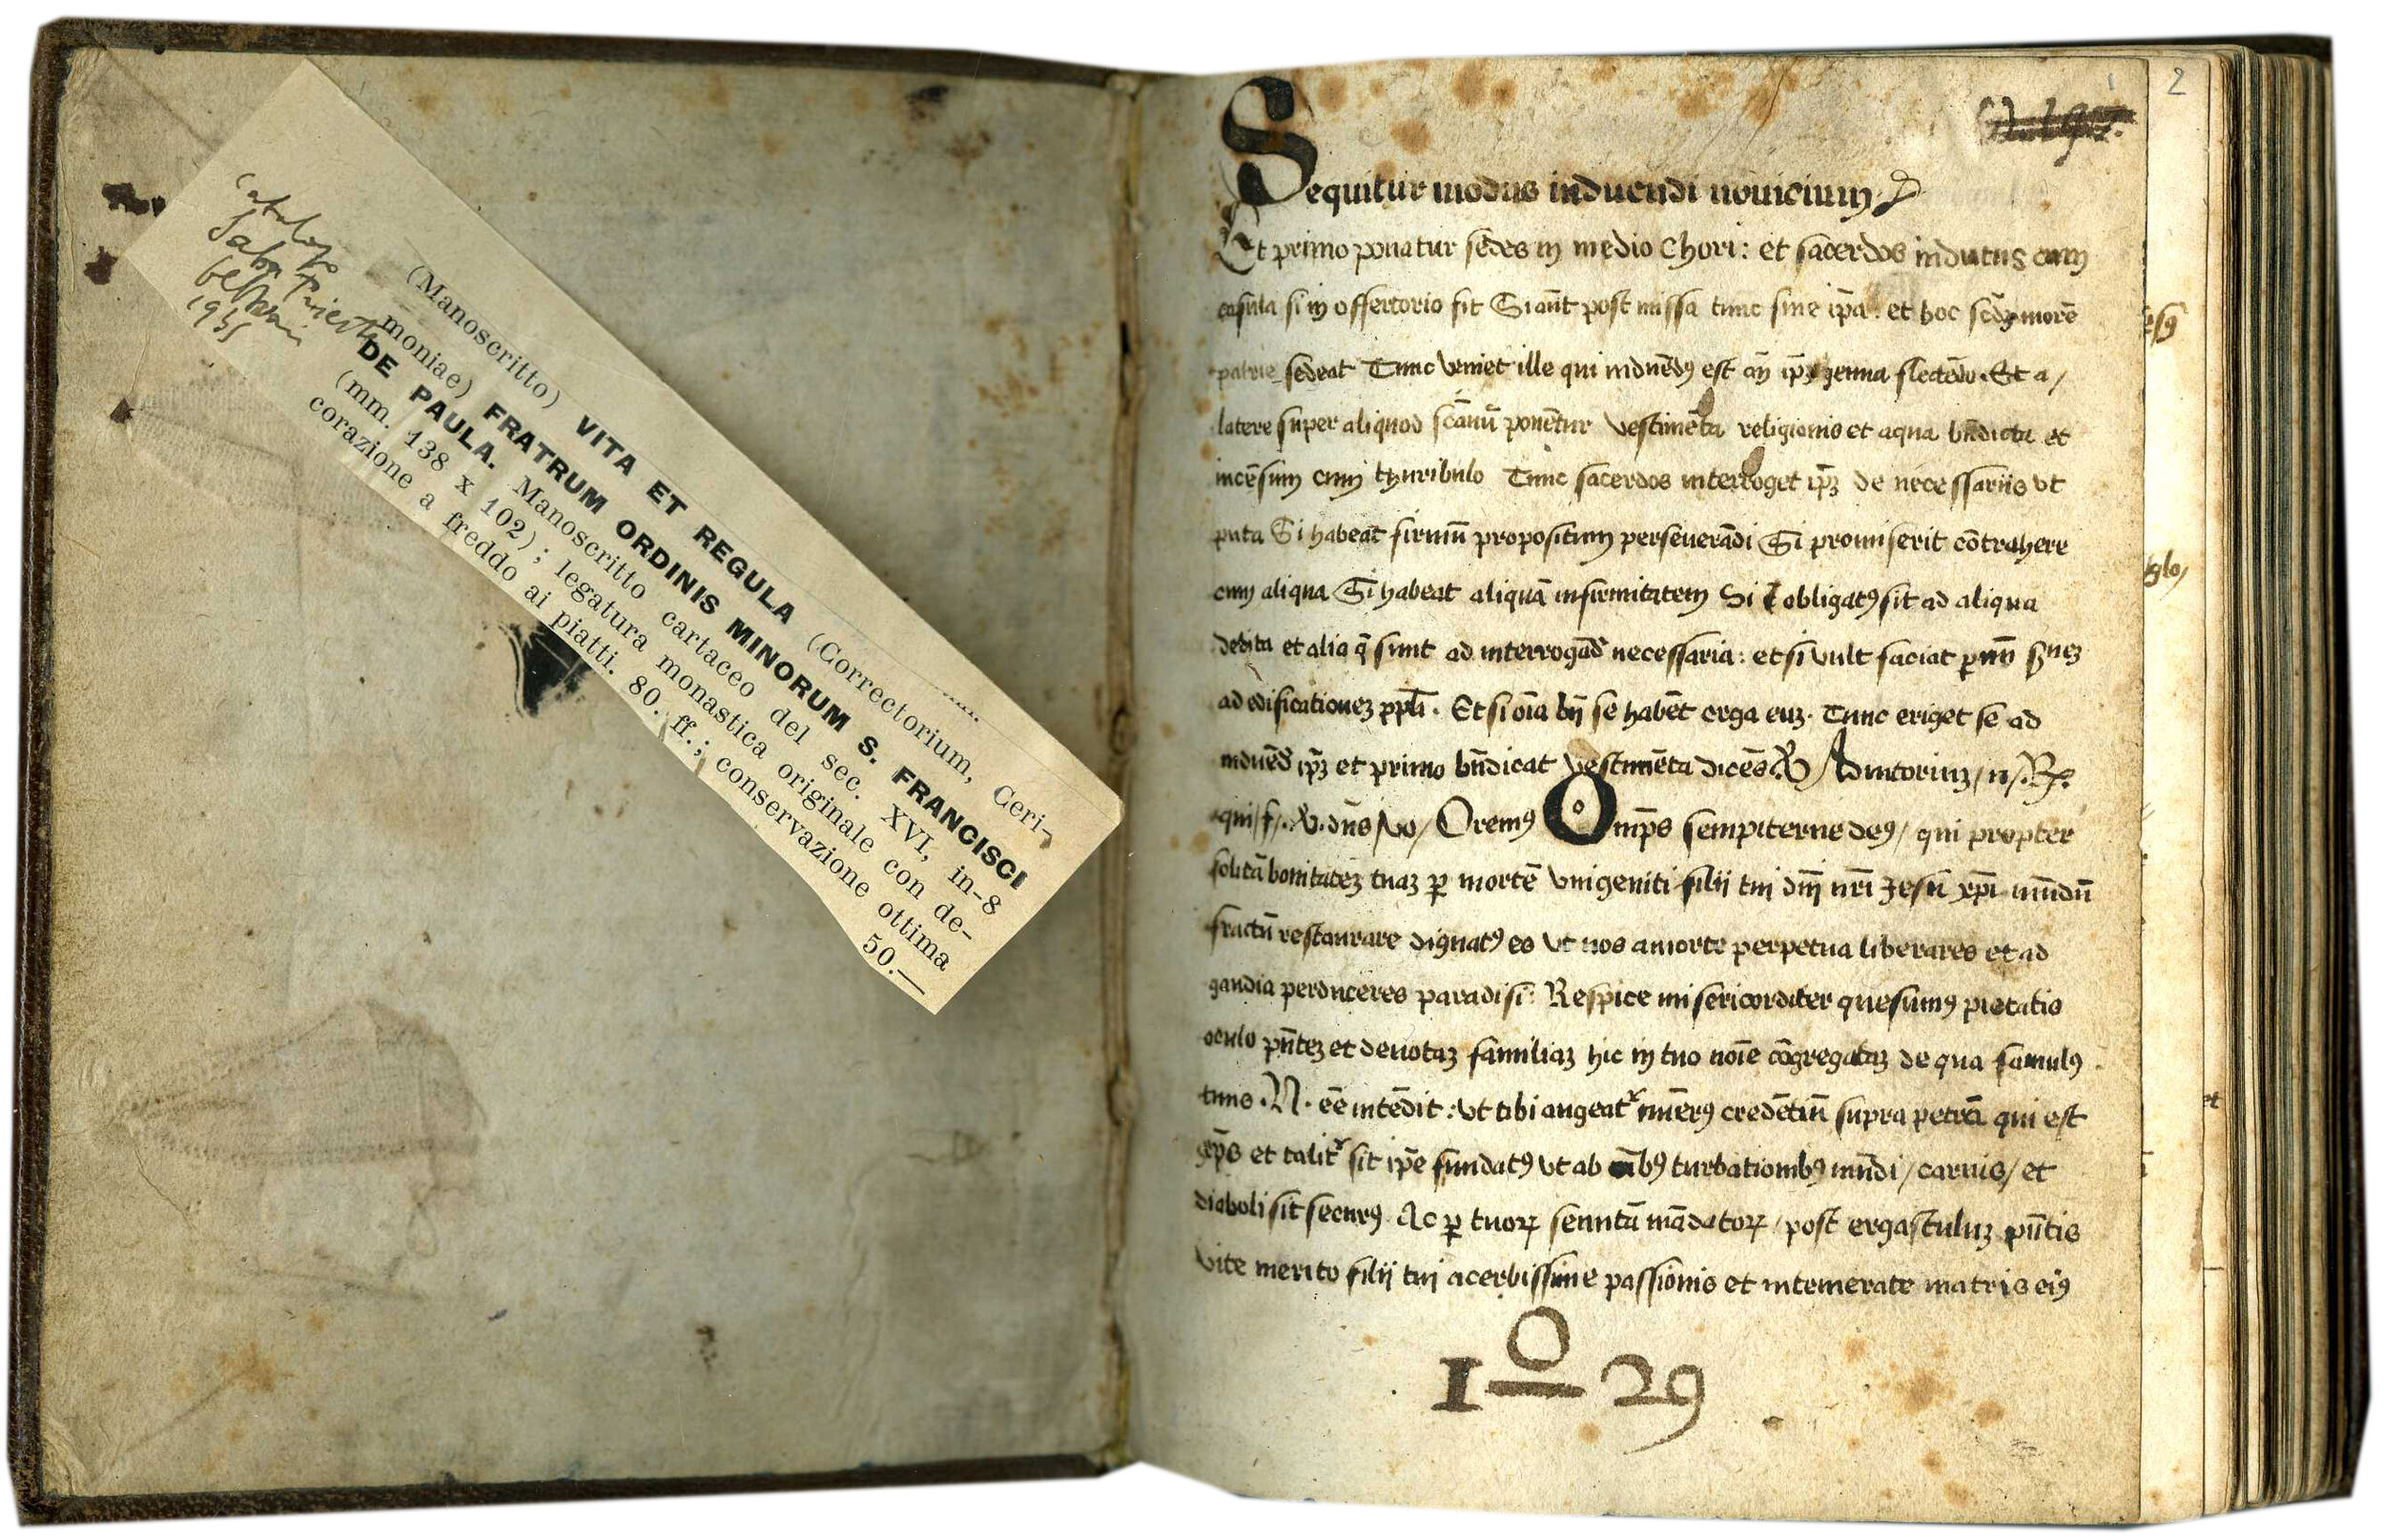 1955
(Manoscritto) VITA ET REGULA (Correctorium, Ceri-
moniae) FRATRUM ORDINIS MINORUM S. FRANCISCI
DE PAULA. Manoscritto cartaceo del sec. XVI, in-8
(mm. 138 x 102); legatura monastica originale con de-
corazione a freddo ai piatti. 80. ff.; conservazione ottima
50.—
1
2
Sequitur modus induendi nouicium
Et primo ponatur sedes in medio Chori: et sacerdos indutus cum
casula si in offertorio fit Si aūt post missa tunc sine ip̄a: et hoc scd̄ʒ morē
patrie sedeat Tunc veniet ille qui induēdꝰ est ip̄ʒ genua flectēdo. Et a/
latere super aliquod scānū ponētur vestimēta religionis et aqua bn̄dicta et
incēsum cum thuribulo Tunc sacerdos interroget ip̄ʒ de necessariis vt
puta Si habeat firmū propositum perseuerādi Si promiserit cōtrahere
cum aliqua Si habeat aliquā infirmitatem Si obligatꝰ sit ad aliqua
debita et alia q̄ sunt ad interrogād necessaria: et si vult faciat
ad edificationeʒ ppl̄i. Et si oīa bn̄ se habēt erga euʒ. Tunc eriget se ad
induēd ip̄ʒ et primo bn̄dicat vestimēta dicēs ℣ Adiutoriuʒ/ n/. ℟.
qui/ f/. ℣. dn̄s/ vo/ Oremꝰ Omp̄s sempiterne deꝰ/ qui propter
solitā bonitateʒ tuaʒ ꝑ mortē vnigeniti filij tui dn̄j nr̄i Jesu xp̄i mūdū
fractū restaurare dignatꝰ es vt nos a morte perpetua liberares et ad
gaudia perduceres paradisi: Respice misericorditer quesumꝰ pietatis
oculo pn̄teʒ et deuotaʒ familiaʒ hic in tuo noīe cōgregataʒ de qua famulꝰ
tuus .N. eē intēdit: vt tibi augeatʳ nuērꝰ credētiū supra petrā qui est
xp̄s et talitʳ sit ip̄e fundatꝰ vt ab oībꝰ turbationibꝰ mūdi/ carnis/ et
diaboli sit securꝰ Ac ꝑ tuoꝝ semitā mādatoꝝ/ post ergastuluʒ pn̄tis
vite merito filij tui acerbissime passionis et intemerate matris eiꝰ
1 0 29
et